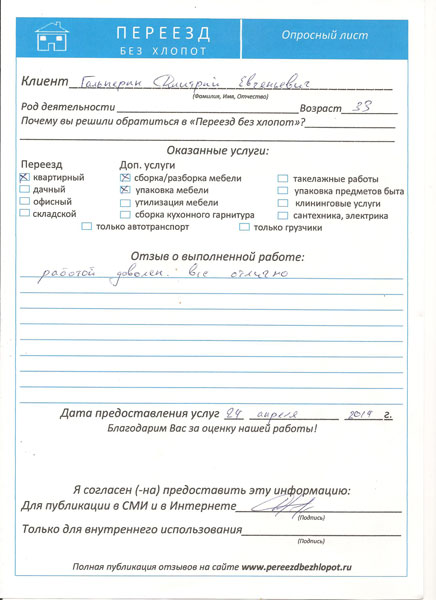 ПЕРЕЕЗД
БЕЗ ХЛОПОТ
Опросный лист
Клиент Гальперин Дмитрий Евгеньевич
(Фамилия, Имя, Отчество)
Род деятельности Возраст 33
Почему вы решили обратиться в «Переезд без хлопот»?
Оказанные услуги:
Переезд Доп. услуги
квартирный сборка/разборка мебели такелажные работы
дачный упаковка мебели упаковка предметов быта
офисный утилизация мебели клининговые услуги
складской сборка кухонного гарнитура сантехника, электрика
только автотранспорт только грузчики
Отзыв о выполненной работе:
работой доволен. все отлично
Дата предоставления услуг 24 апреля 2014 г.
Благодарим Вас за оценку нашей работы!
Я согласен (-на) предоставить эту информацию:
Для публикации в СМИ и в Интернете
(Подпись)
Только для внутреннего использования
(Подпись)
Полная публикация отзывов на сайте www.pereezdbezhlopot.ru